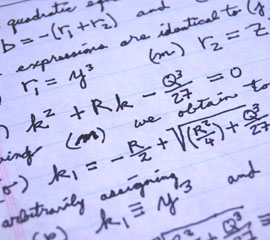 quadratic equ
b = -(r₁ + r₂) and
expressions are identical to (y
r₁ = y³ (m) r₂ = z
) k² + Rk - Q³/27 = 0
(m) we obtain to
o) k₁ = -R/2 + √(R²/4) + Q³/27
arbitrarily assigning
(b) k₁ ≡ y³ and